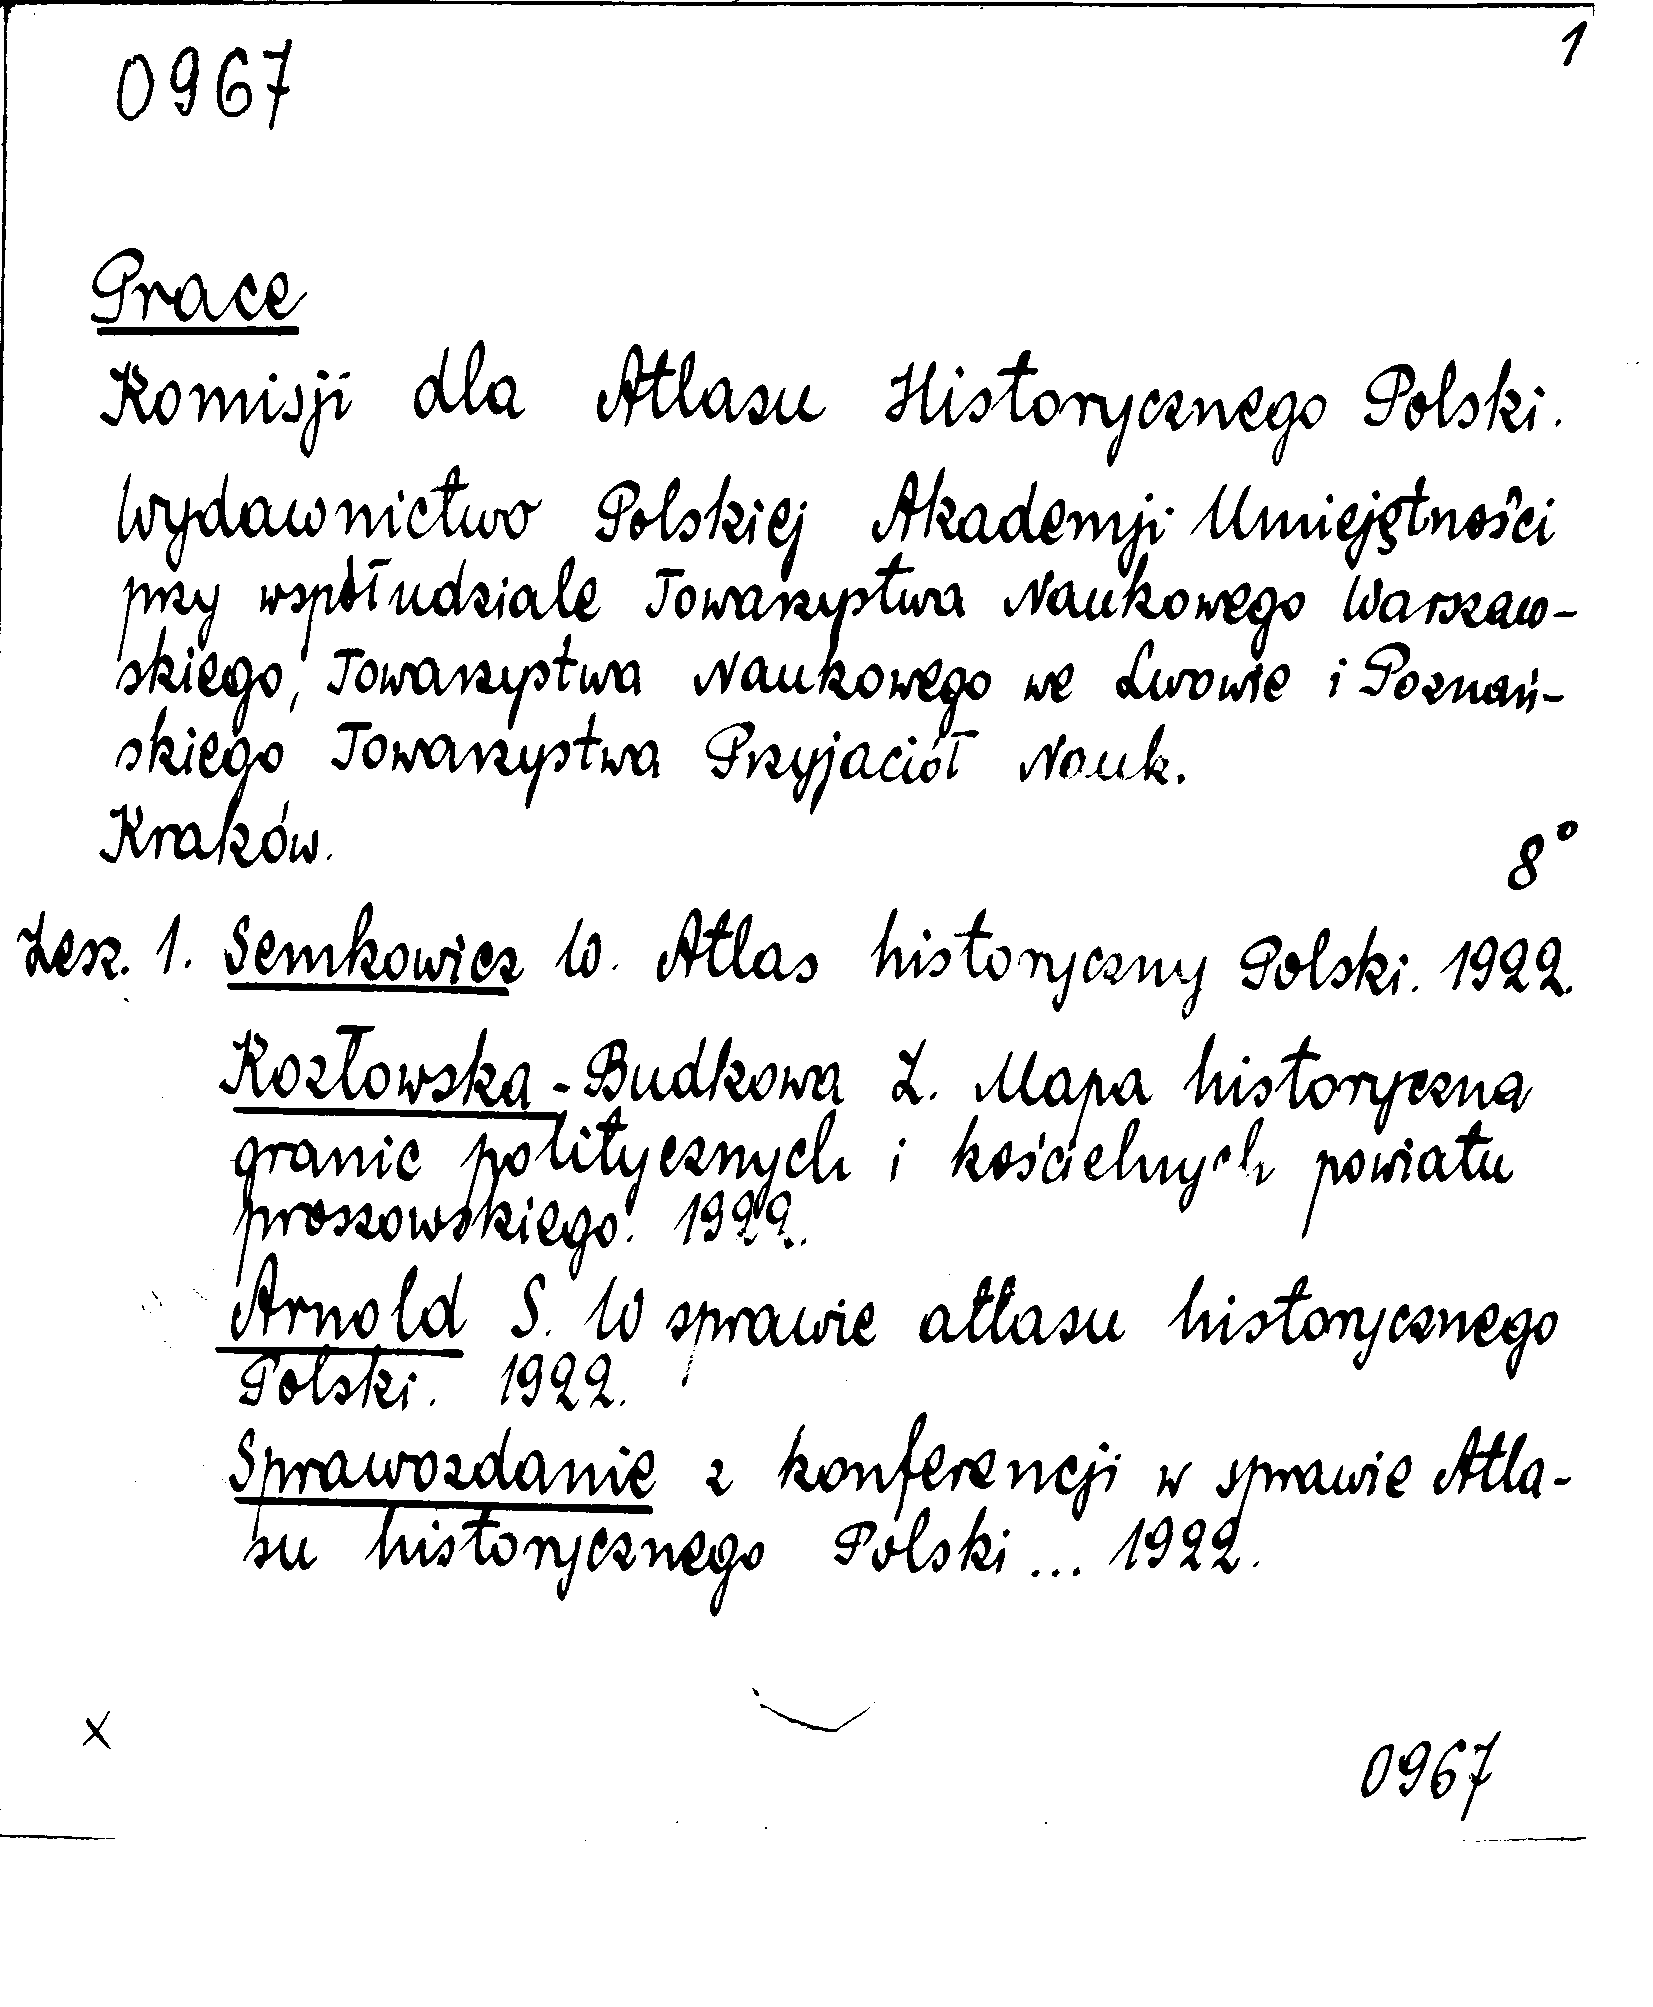 1
0967
Prace
Komisji dla Atlasu Historycznego Polski.
Wydawnictwo Polskiej Akademji Umiejętności
przy współudziale Towarzystwa Naukowego Warszaw-
skiego, Towarzystwa Naukowego we Lwowie i Poznań-
skiego Towarzystwa Przyjaciół Nauk.
Kraków.
8°
Zesz. 1. Semkowicz W. Atlas historyczny Polski. 1922.
Kozłowska-Budkowa Z. Mapa historyczna
granic politycznych i kościelnych powiatu
proszowskiego. 1922.
Arnold S. W sprawie atlasu historycznego
Polski. 1922.
Sprawozdanie z konferencji w sprawie Atla-
su historycznego Polski... 1922.
x
0967